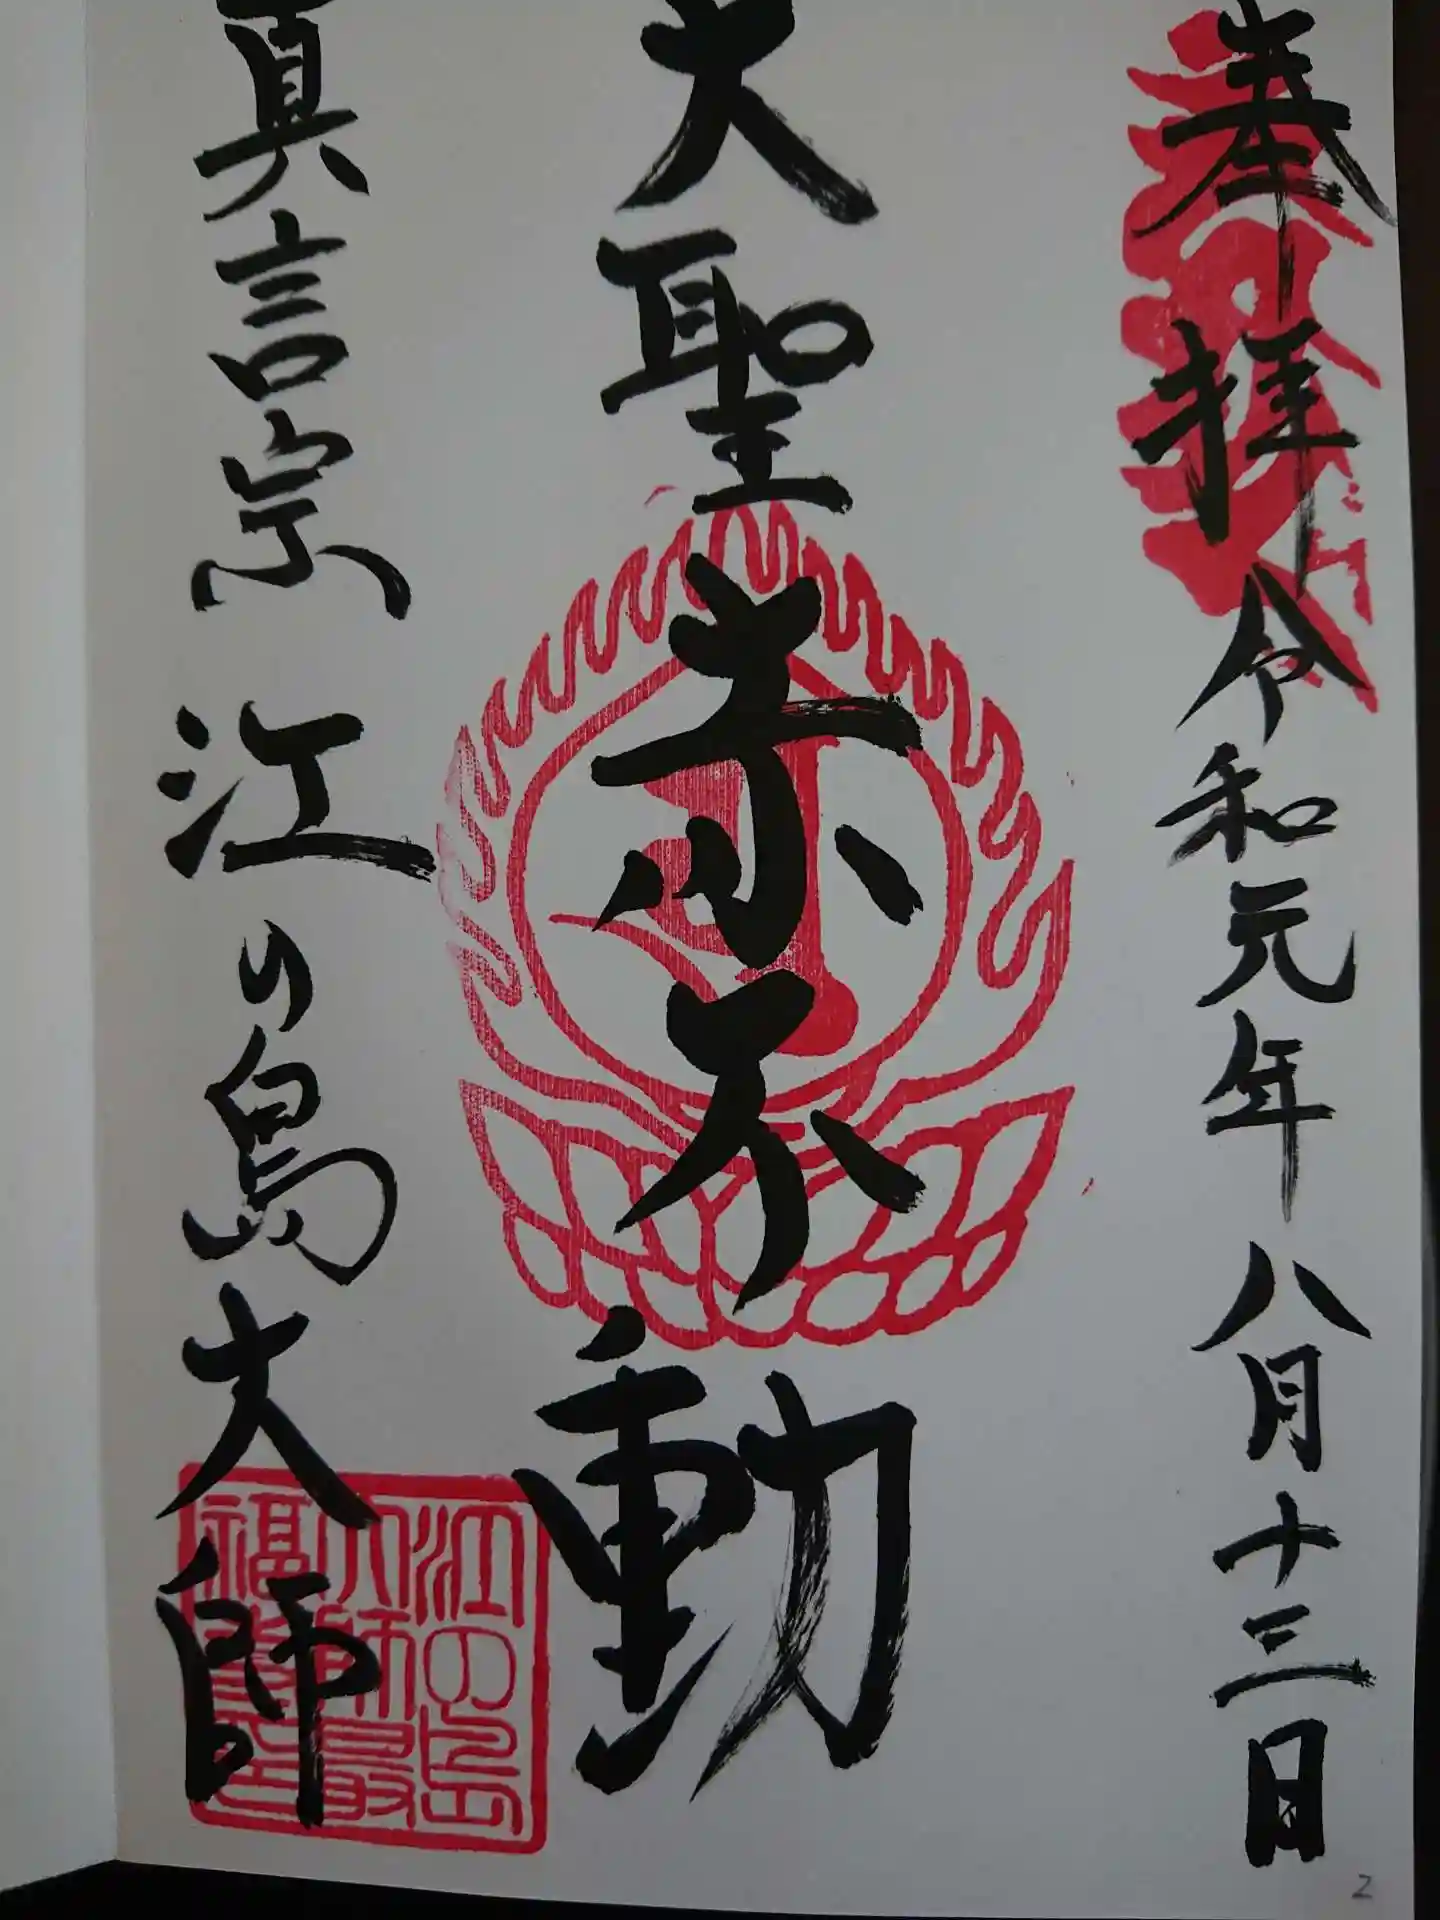 奉拝 令和元年 八月十三日
大聖赤不動
真言宗 江の島大師
江の島
大師最
福
2